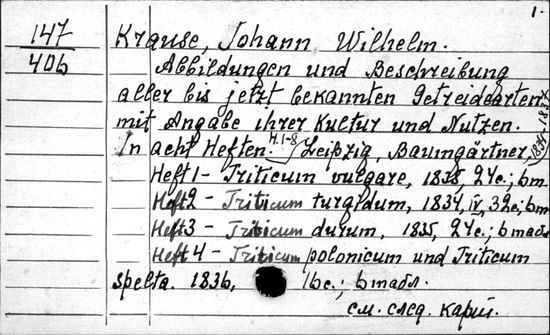 1.
147
406
Krause, Johann Wilhelm.
Abbildungen und Beschreibung
aller bis jetzt bekannten Getreidearten
mit Angabe ihrer Kultur und Nutzen.
In acht Heften. H. 1-8 Leipzig, Baumgärtner,
Heft 1 - Triticum vulgare, 1835, 24 с.; 6 т
Heft 2 - Triticum turgidum, 1834, IV, 32 с., 6 т
Heft 3 - Triticum durum, 1835, 24 с.; 6 табл
Heft 4 - Triticum polonicum und Triticum
spelta. 1836, 16 с.; 6 табл.
см. след. карт.